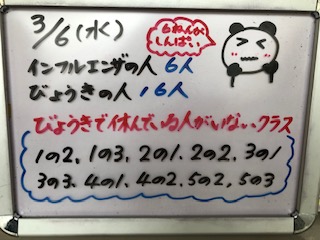 3/6(水)
6ねんが
しんぱい
インフルエンザの人 6人
びょうきの人 16人
びょうきで休んでいる人がいないクラス
1の2、1の3、2の1、2の2、3の1
3の3、4の1、4の2、5の2、5の3